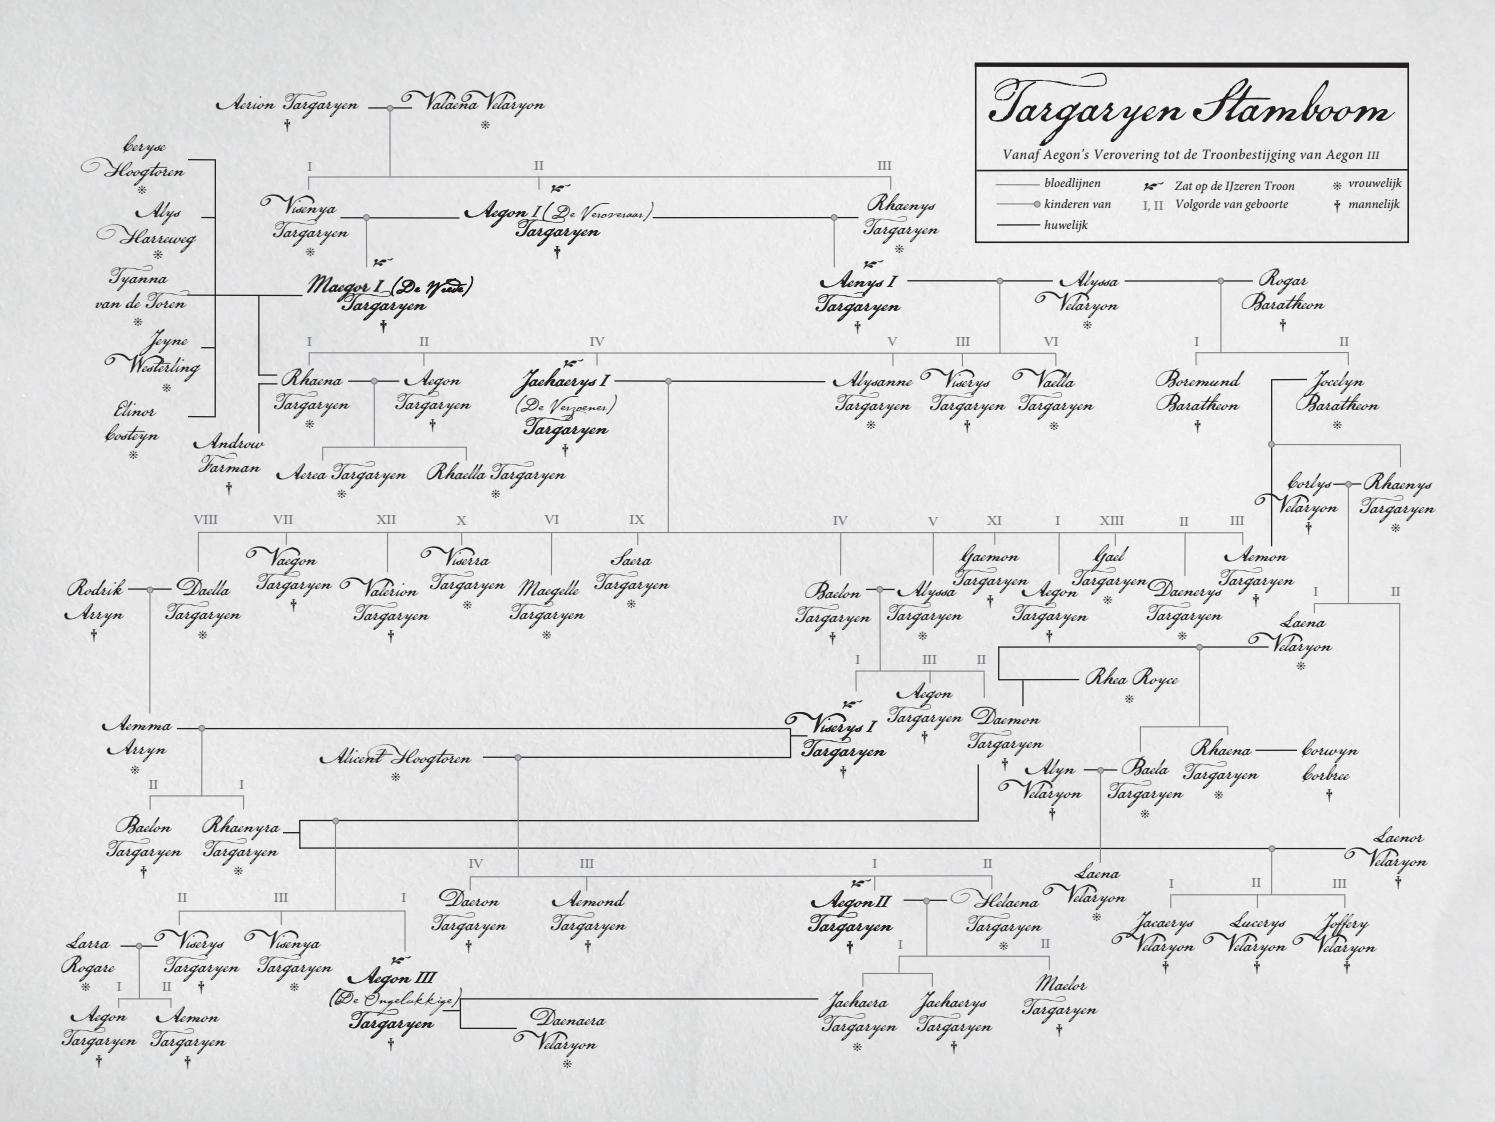 Targaryen Stamboom
Vanaf Aegon's Verovering tot de Troonbestijging van Aegon III
bloedlijnen
kinderen van
huwelijk
Zat op de IJzeren Troon
I, II Volgorde van geboorte
vrouwelijk
mannelijk
Aerion Targaryen
Valaena Velaryon
Ceryse
Hoogtoren
Alys
Harreweg
Tyanna
van de Toren
Jeyne
Westerling
Elinor
Costeyn
I
II
III
Visenya
Targaryen
Aegon I (De Veroveraar)
Targaryen
Rhaenys
Targaryen
Maegor I (De Wrede)
Targaryen
Aenys I
Targaryen
Alyssa
Velaryon
Rogar
Baratheon
I
II
IV
V
III
VI
I
II
Rhaena
Targaryen
Aegon
Targaryen
Jaehaerys I
(De Verzoener)
Targaryen
Alysanne
Targaryen
Viserys
Targaryen
Vaella
Targaryen
Boremund
Baratheon
Jocelyn
Baratheon
Androw
Farman
Aerea Targaryen
Rhaella Targaryen
Corlys
Velaryon
Rhaenys
Targaryen
VIII
VII
XII
X
VI
IX
IV
V
XI
I
XIII
II
III
Rodrik
Arryn
Daella
Targaryen
Vaegon
Targaryen
Valerion
Targaryen
Viserra
Targaryen
Maegelle
Targaryen
Saera
Targaryen
Baelon
Targaryen
Alyssa
Targaryen
Gaemon
Targaryen
Aegon
Targaryen
Gael
Targaryen
Daenerys
Targaryen
Aemon
Targaryen
I
II
Laena
Velaryon
I
III
II
Rhea Royce
Aemma
Arryn
Alicent Hoogtoren
Viserys I
Targaryen
Aegon
Targaryen
Daemon
Targaryen
Alyn
Velaryon
Baela
Targaryen
Rhaena
Targaryen
Corwyn
Corbree
II
I
Baelon
Targaryen
Rhaenyra
Targaryen
Laenor
Velaryon
IV
III
I
II
Daeron
Targaryen
Aemond
Targaryen
Aegon II
Targaryen
Helaena
Targaryen
Laena
Velaryon
I
II
III
Jacaerys
Velaryon
Lucerys
Velaryon
Joffery
Velaryon
II
III
I
Larra
Rogare
Viserys
Targaryen
Visenya
Targaryen
Aegon III
(De Ongelukkige)
Targaryen
I
II
Jaehaera
Targaryen
Jaehaerys
Targaryen
Maelor
Targaryen
I
II
Aegon
Targaryen
Aemon
Targaryen
Daenaera
Velaryon